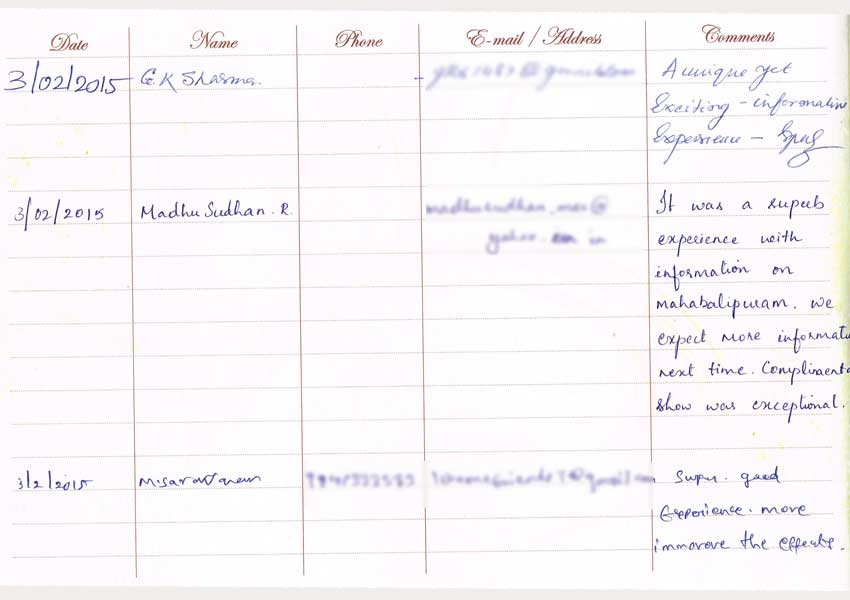 Date Name Phone E-mail / Address Comments
3/02/2015 G.K Sharma. A unique yet
Exciting - informative
Experience -
3/02/2015 Madhu Sudhan. R. It was a superb
experience with
information on
mahabalipuram. we
expect more informat
next time. Compliment
show was exceptional.
3/2/2015 M. Super. good
Experience. more
immorove the effects.